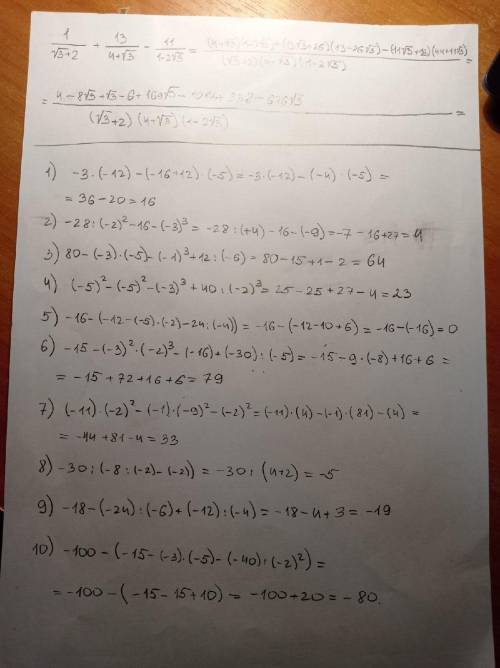 1/(√3+2) + 13/(4+√3) - 11/(1-2√3) =
=
(√3+2)(4+√3)(1-2√3)
1) -3·(-12)-(-16+12)·(-5)=-3·(-12)-(-4)·(-5)=
=36-20=16
2) -28:(-2)²-16-(-3)³=-28:(+4)-16-(-9)=-7-16+27=4
3) 80-(-3)·(-5)-(-1)³+12:(-6)=80-15+1-2=64
4) (-5)²-(-5)²-(-3)³+40:(-2)³=25-25+27-4=23
5) -16-(-12-(-5)·(-2)-24:(-4))=-16-(-12-10+6)=-16-(-16)=0
6) -15-(-3)²·(-2)³-(-16)+(-30):(-5)=-15-9·(-8)+16+6=
=-15+72+16+6=79
7) (-11)·(-2)²-(-1)·(-9)²-(-2)²=(-11)·(4)-(-1)·(81)-(4)=
=-44+81-4=33
8) -30:(-8:(-2)-(-2))=-30:(4+2)=-5
9) -18-(-24):(-6)+(-12):(-4)=-18-4+3=-19
10) -100-(-15-(-3)·(-5)-(-40):(-2)²)=
=-100-(-15-15+10)=-100+20=-80.